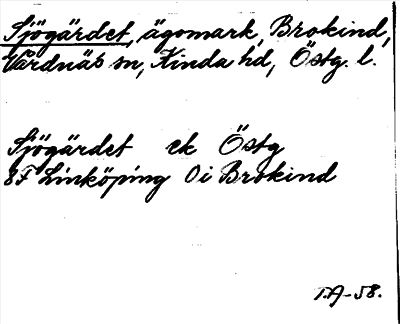 Sjögärdet, ägomark, Brokind,
Vårdnäs sn, Kinda hd, Östg. l.
Sjögärdet ek Östg
8F Linköping 0i Brokind
T.A-58.